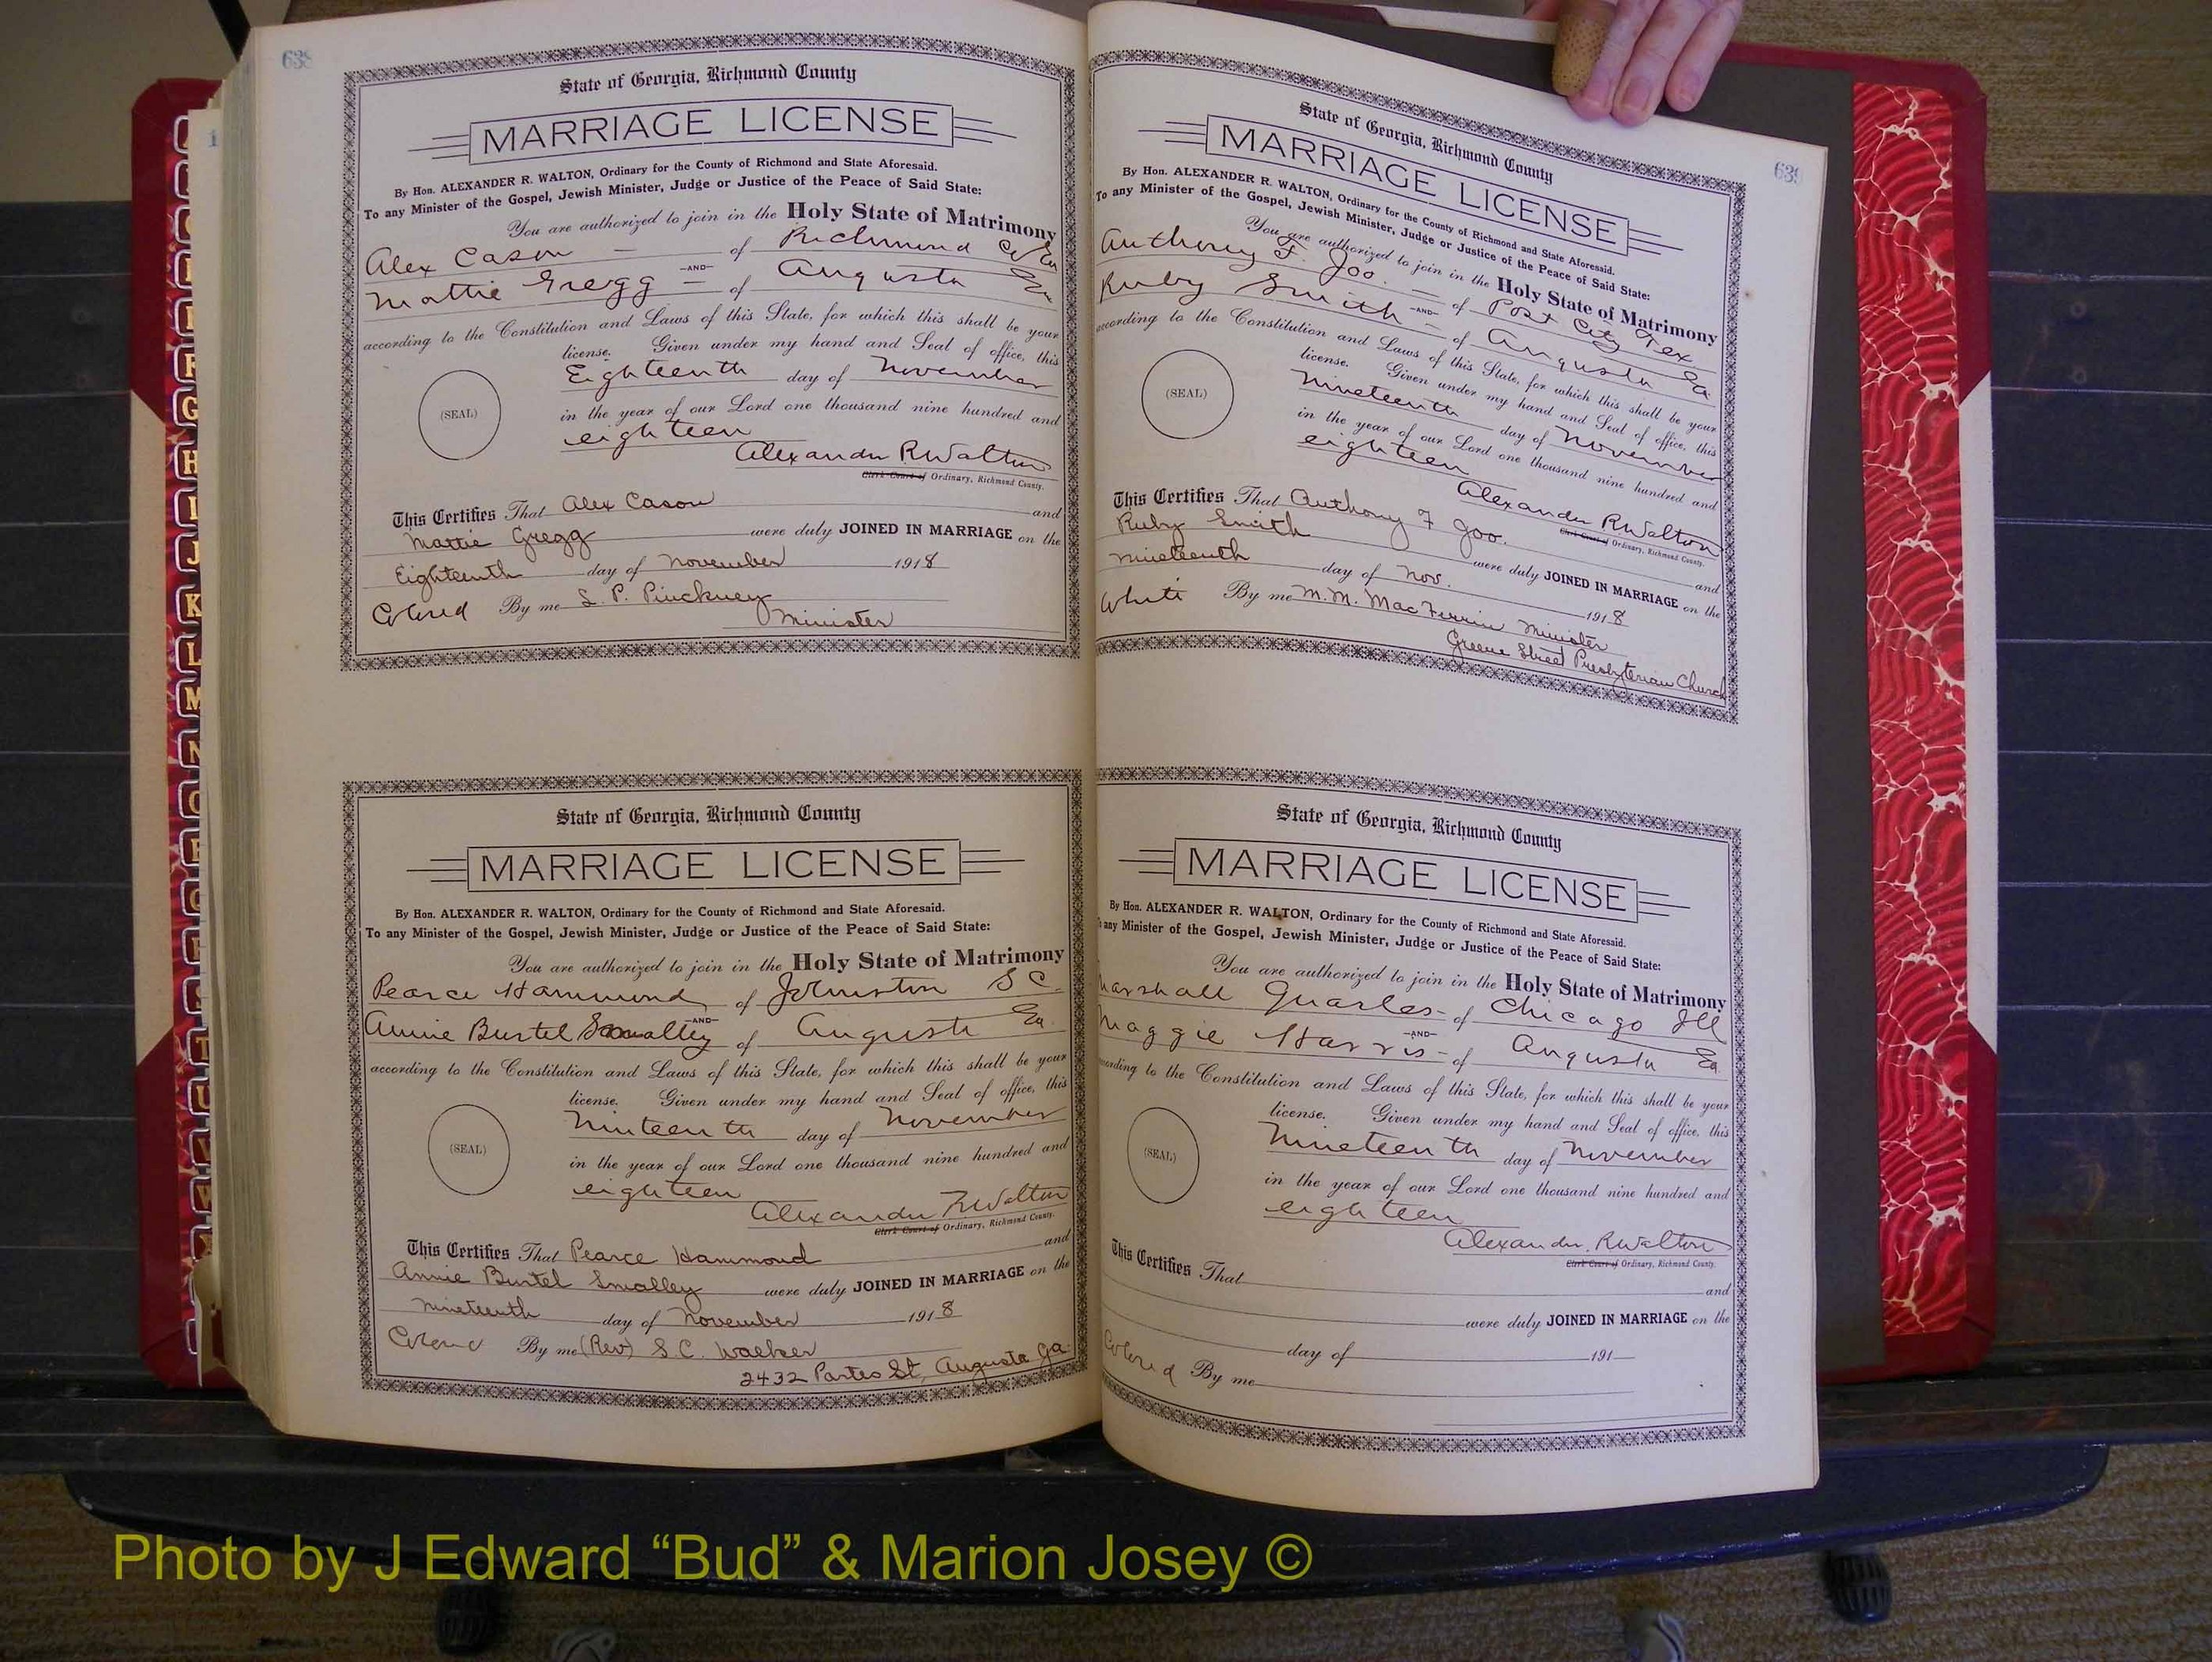 638
State of Georgia, Richmond County
MARRIAGE LICENSE
By Hon. ALEXANDER R. WALTON, Ordinary for the County of Richmond and State Aforesaid.
To any Minister of the Gospel, Jewish Minister, Judge or Justice of the Peace of Said State:
You are authorized to join in the Holy State of Matrimony
Alex Cason — of Richmond Co Ga
—AND—
Mattie Gregg — of Augusta Ga
according to the Constitution and Laws of this State, for which this shall be your
license. Given under my hand and Seal of office, this
(SEAL)
Eighteenth day of November
in the year of our Lord one thousand nine hundred and
eighteen
Alexander R Walton
Clerk Court of Ordinary, Richmond County.
This Certifies That Alex Cason and
Mattie Gregg were duly JOINED IN MARRIAGE on the
Eighteenth day of November 1918
Colored By me S. P. Pinckney
Minister
State of Georgia, Richmond County
MARRIAGE LICENSE
By Hon. ALEXANDER R. WALTON, Ordinary for the County of Richmond and State Aforesaid.
To any Minister of the Gospel, Jewish Minister, Judge or Justice of the Peace of Said State:
You are authorized to join in the Holy State of Matrimony
Pearce Hammond of Johnston S C.
—AND—
Annie Burtel Smalley of Augusta Ga.
according to the Constitution and Laws of this State, for which this shall be your
license. Given under my hand and Seal of office, this
(SEAL)
Ninteenth day of November
in the year of our Lord one thousand nine hundred and
eighteen
Alexander R Walton
Clerk Court of Ordinary, Richmond County.
This Certifies That Pearce Hammond and
Annie Burtel Smalley were duly JOINED IN MARRIAGE on the
nineteenth day of November 1918
Colored By me (Rev) S. C. Walker
2432 St, Augusta Ga.
639
State of Georgia, Richmond County
MARRIAGE LICENSE
By Hon. ALEXANDER R. WALTON, Ordinary for the County of Richmond and State Aforesaid.
To any Minister of the Gospel, Jewish Minister, Judge or Justice of the Peace of Said State:
You are authorized to join in the Holy State of Matrimony
Anthony F. Joo. — of Post City Tex
—AND—
Ruby Smith — of Augusta Ga
according to the Constitution and Laws of this State, for which this shall be your
license. Given under my hand and Seal of office, this
(SEAL)
Nineteenth day of November
in the year of our Lord one thousand nine hundred and
eighteen
Alexander R Walton
Clerk Court of Ordinary, Richmond County.
This Certifies That Anthony F Joo. and
Ruby Smith were duly JOINED IN MARRIAGE on the
nineteenth day of Nov. 1918
White By me M. M. MacFerrin Minister
Greene Street Presbyterian Church
State of Georgia, Richmond County
MARRIAGE LICENSE
By Hon. ALEXANDER R. WALTON, Ordinary for the County of Richmond and State Aforesaid.
To any Minister of the Gospel, Jewish Minister, Judge or Justice of the Peace of Said State:
You are authorized to join in the Holy State of Matrimony
Marshall Quarles - of Chicago Ill
—AND—
Maggie Harris - of Augusta Ga
according to the Constitution and Laws of this State, for which this shall be your
license. Given under my hand and Seal of office, this
(SEAL)
Nineteenth day of November
in the year of our Lord one thousand nine hundred and
eighteen
Alexander R Walton
Clerk Court of Ordinary, Richmond County.
This Certifies That
and
were duly JOINED IN MARRIAGE on the
day of 191
Colored By me
G
H
I
J
K
L
M
N
Photo by J Edward “Bud” & Marion Josey ©